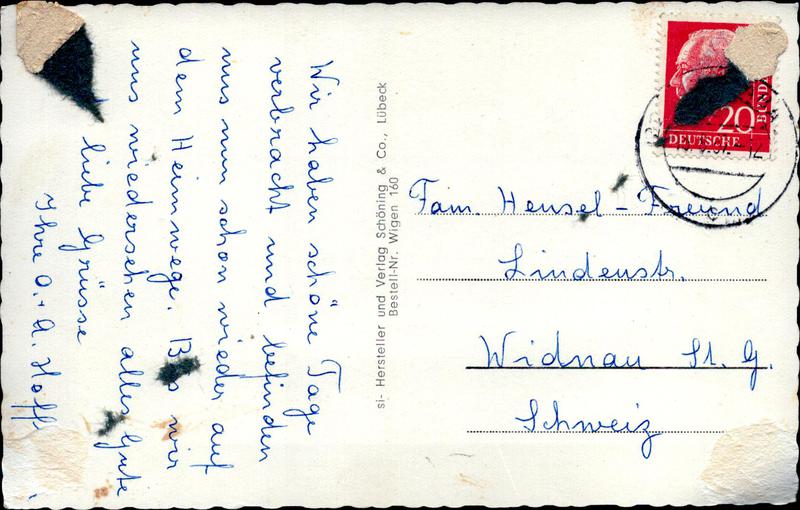 Wir haben schöne Tage
verbracht und befinden
uns nun schon wieder auf
dem Heimwege. Bis wir
uns wiedersehen alles Gute
liebe Grüsse
Ihre O. + A. Hoff
si- Hersteller und Verlag Schöning & Co., Lübeck
Bestell-Nr. Wigen 160
20
DEUTSCHE
BUND
Fam. Hensel - Freund
Lindenstr.
Widnau St. G.
Schweiz